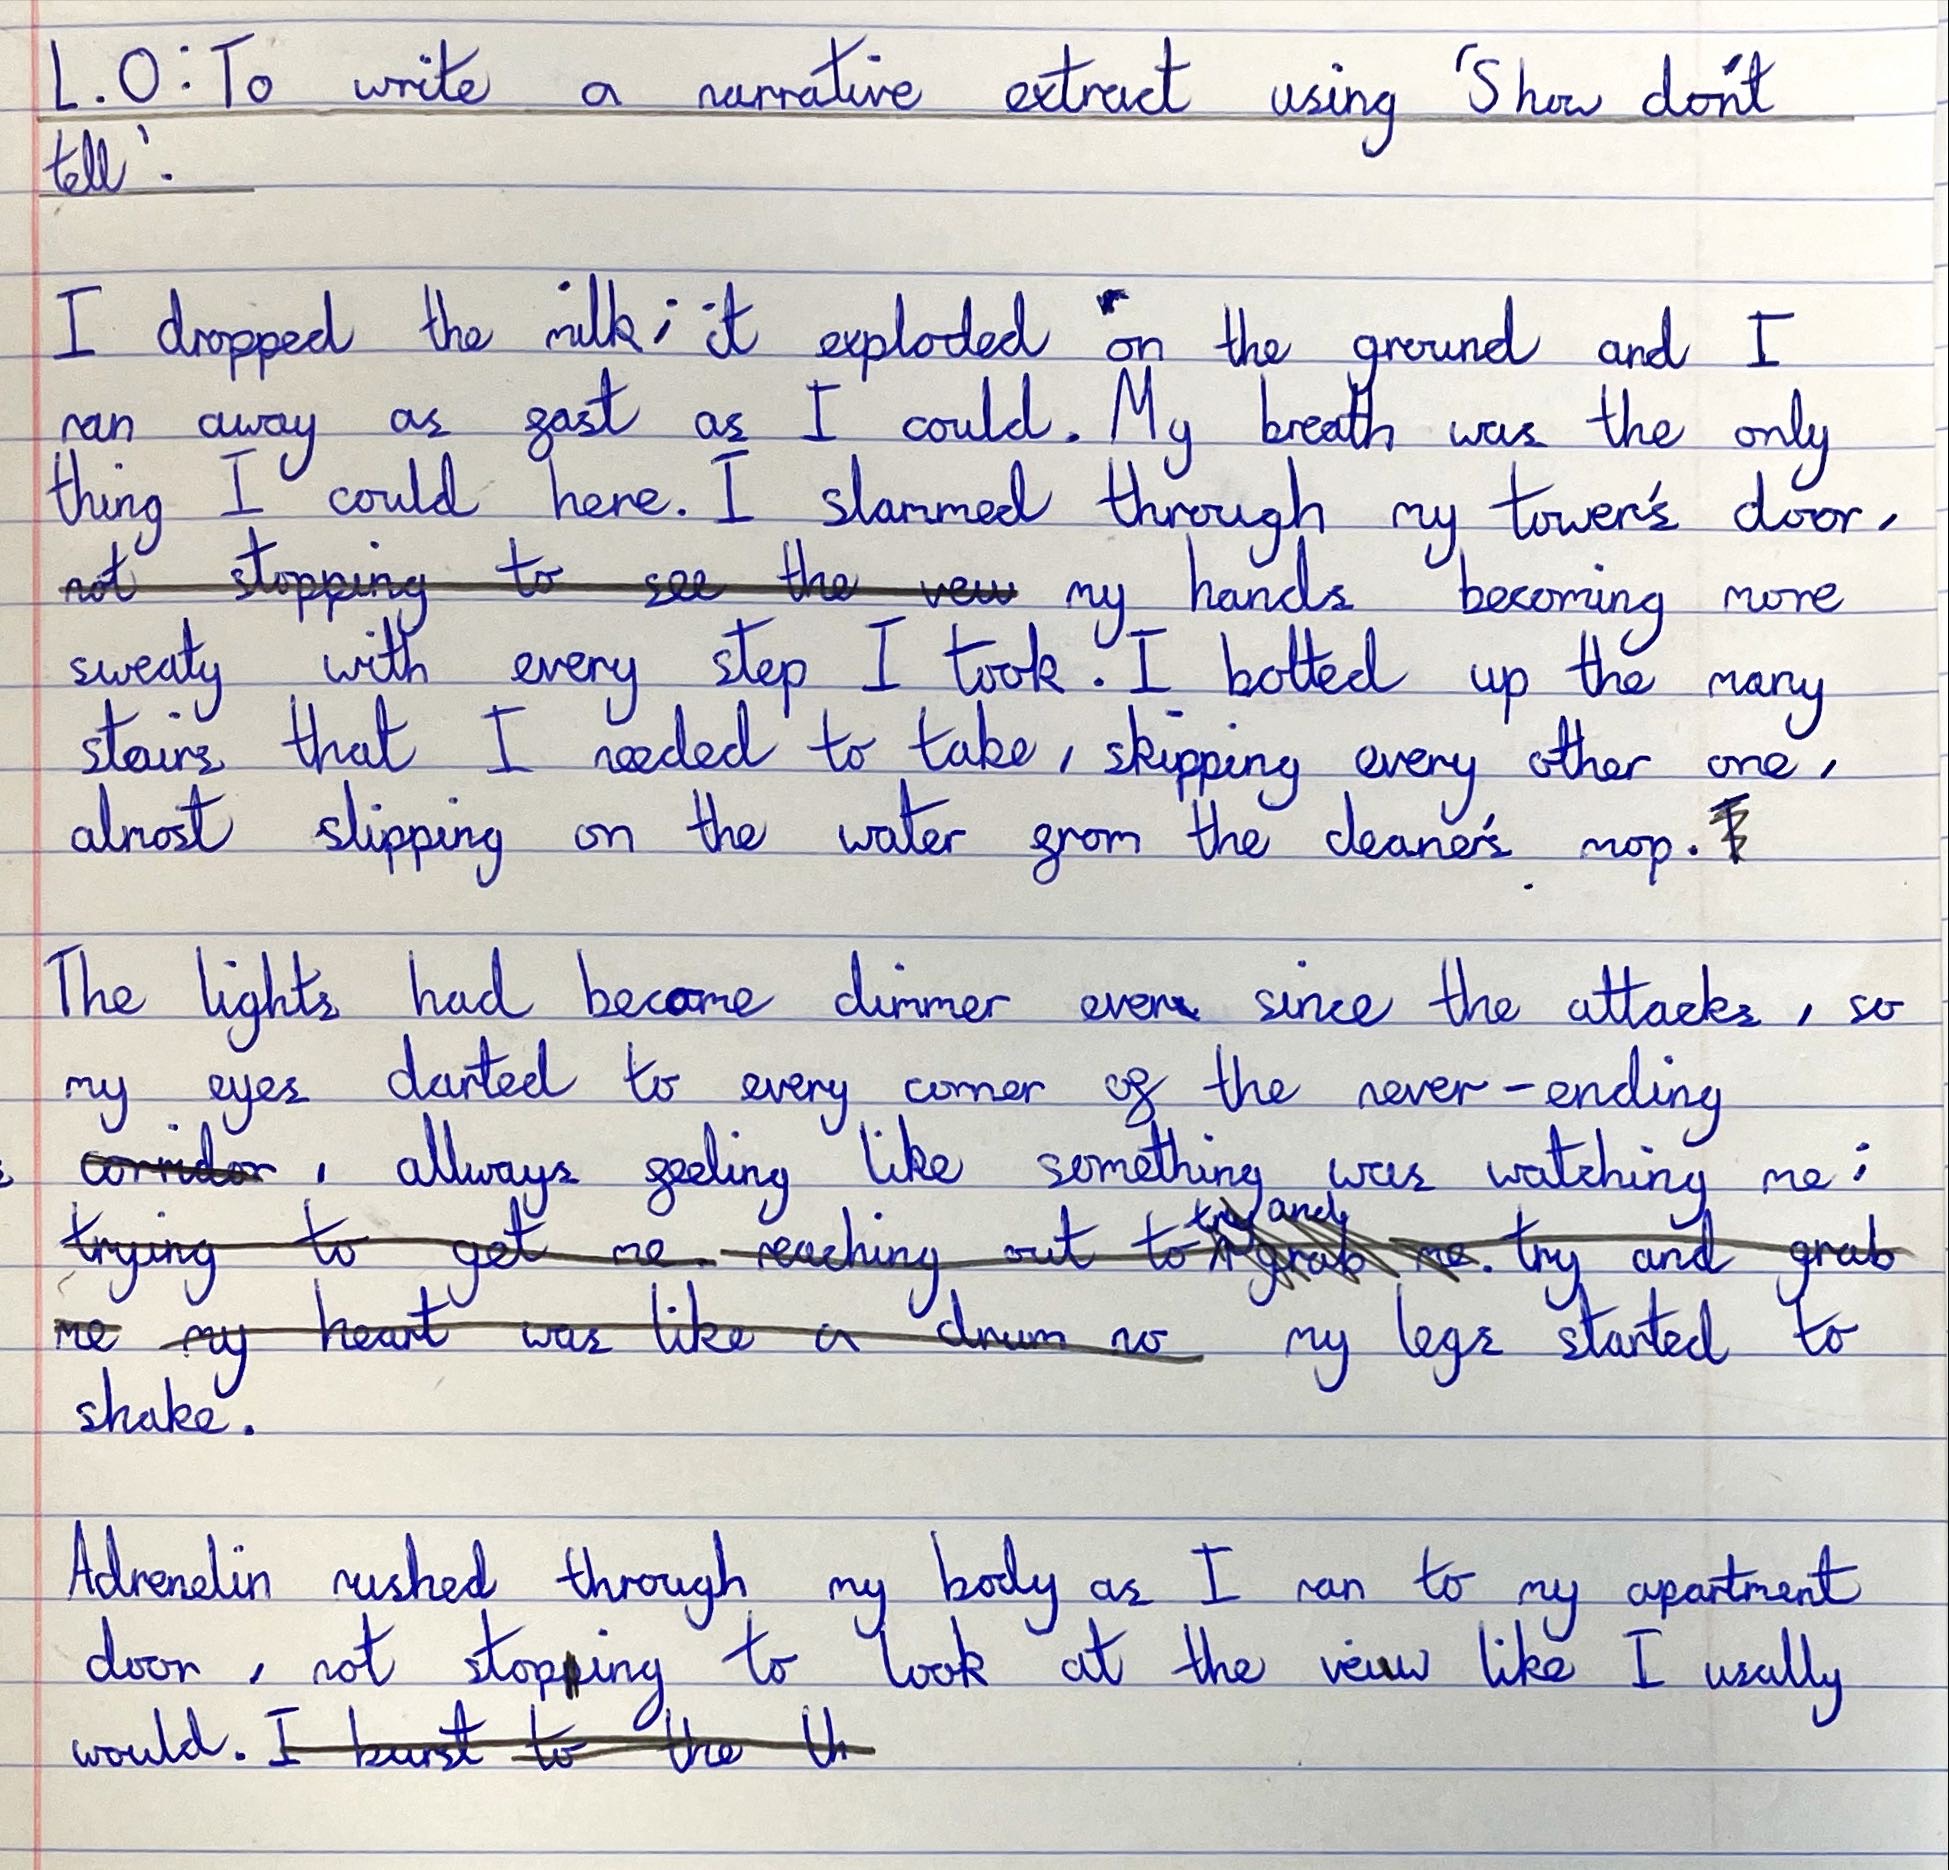 L.O: To write a narrative extract using 'Show don't
tell'.
I dropped the milk; it exploded on the ground and I
ran away as fast as I could. My breath was the only
thing I could here. I slammed through my tower's door,
not stopping to see the veiw my hands becoming more
sweaty with every step I took. I bolted up the many
stairs that I needed to take, skipping every other one,
almost slipping on the water from the cleaner's mop.
The lights had become dimmer ever since the attacks, so
my eyes darted to every corner of the never-ending
corridor, allways feeling like something was watching me;
try and
trying to get me. reaching out to grab me. try and grab
me my heart was like a drum no my legs started to
shake.
Adrenelin rushed through my body as I ran to my apartment
door, not stopping to look at the veiw like I usally
would. I burst to the th